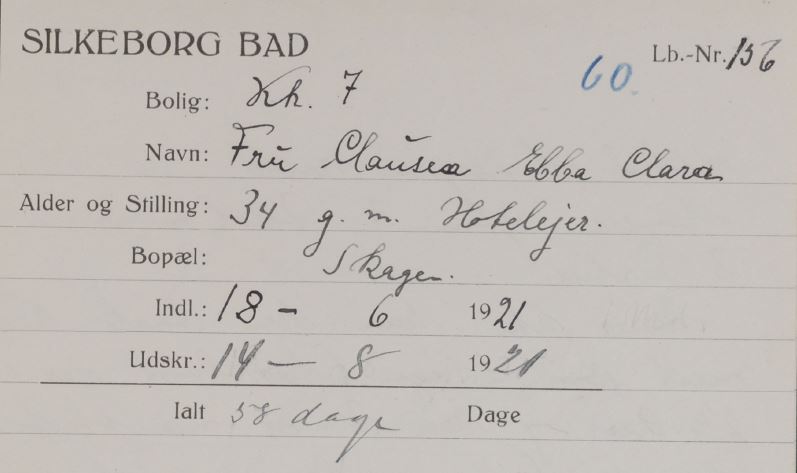 SILKEBORG BAD
60. Lb.-Nr. 156
Bolig: Kh. 7
Navn: Fru Clausen Ebba Clara
Alder og Stilling: 34 g. m. Hotelejer.
Bopæl: Skagen.
Indl.: 18 - 6 1921
Udskr.: 14 — 8 1921
Ialt 58 dage Dage